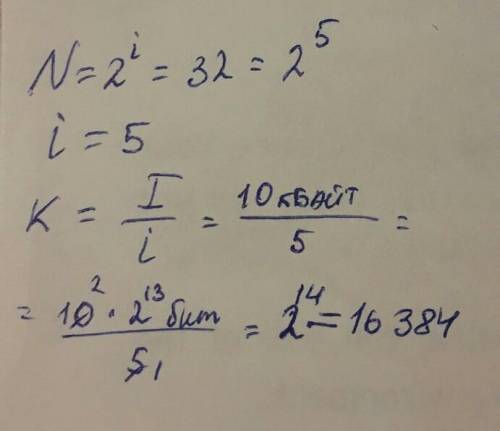 N = 2^i = 32 = 2^5
i = 5
K = I/i = 10 кБАЙТ/5 =
= 10 2 · 2^13 бит/5 1 = 2^14 = 16 384